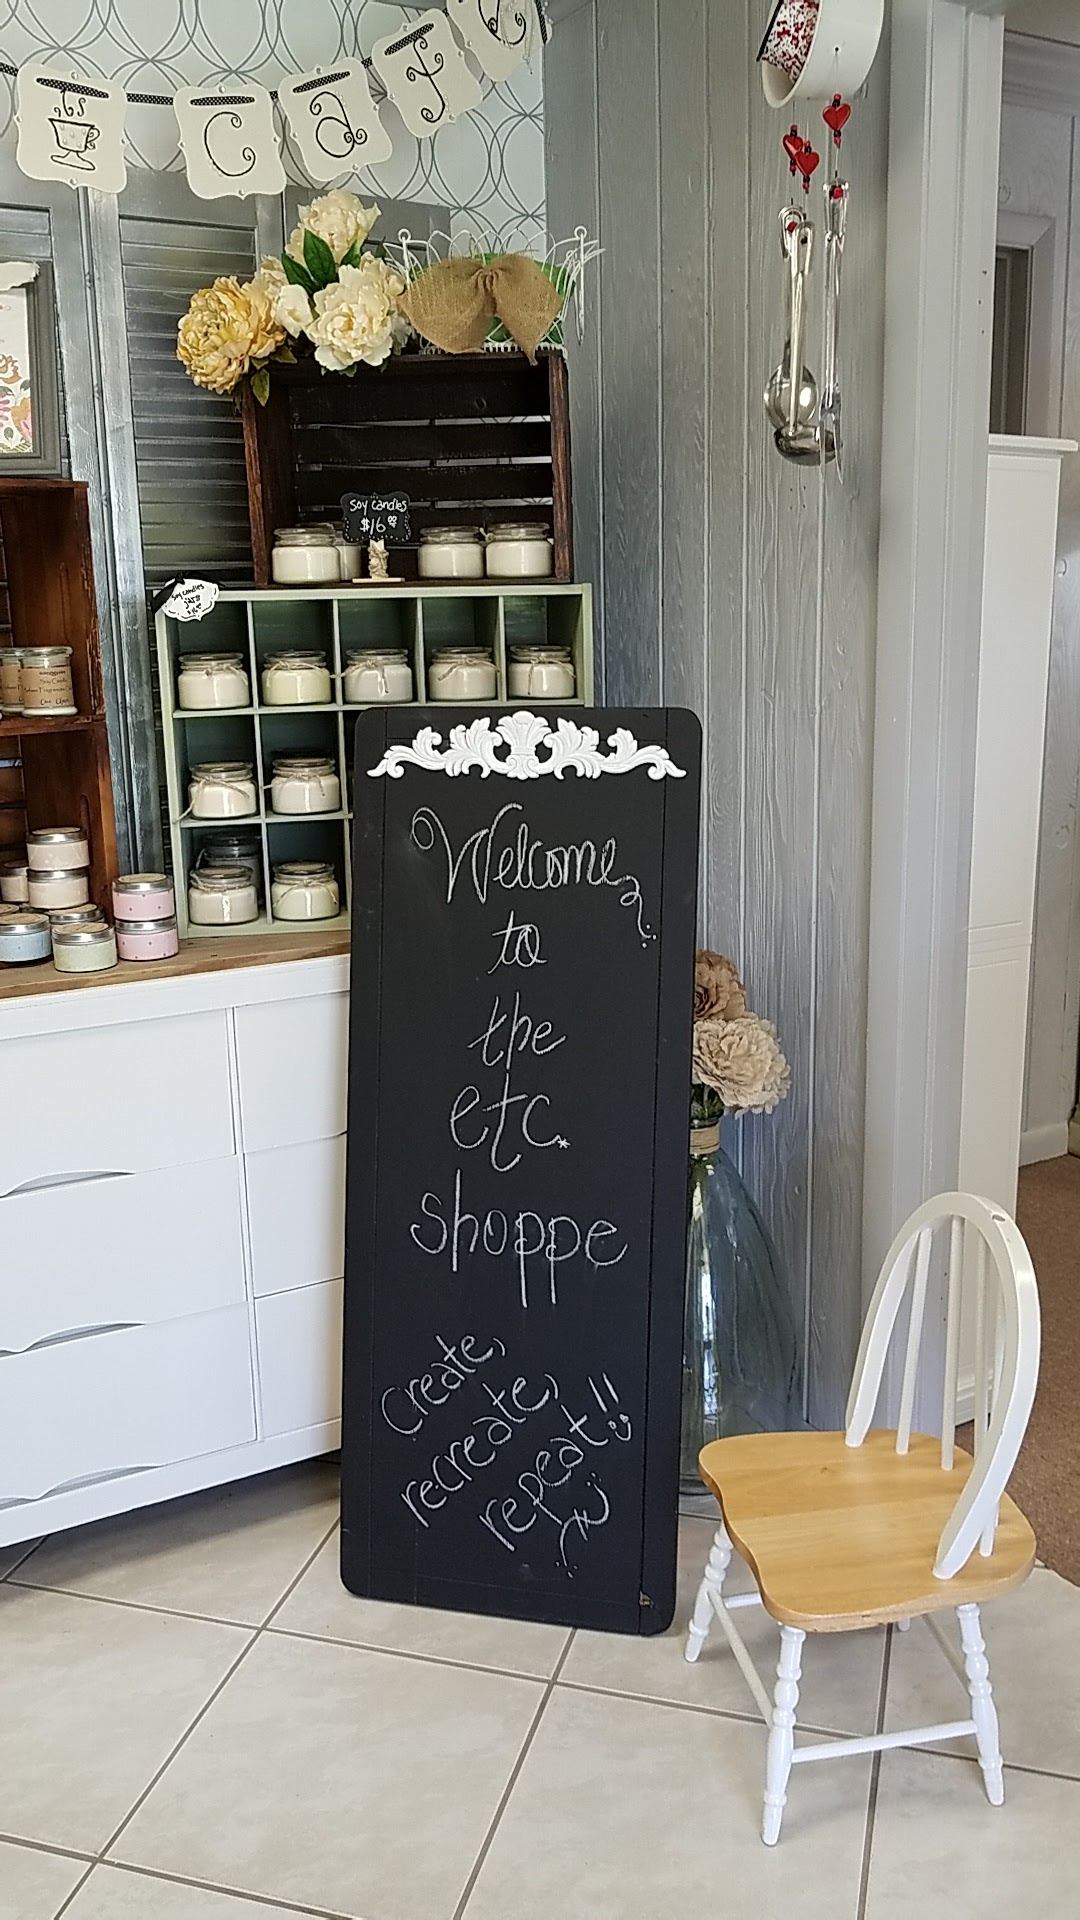 cafe
soy candles
$16.00
soy candles
Welcome
to
the
etc.
shoppe
Create,
recreate,
repeat!!